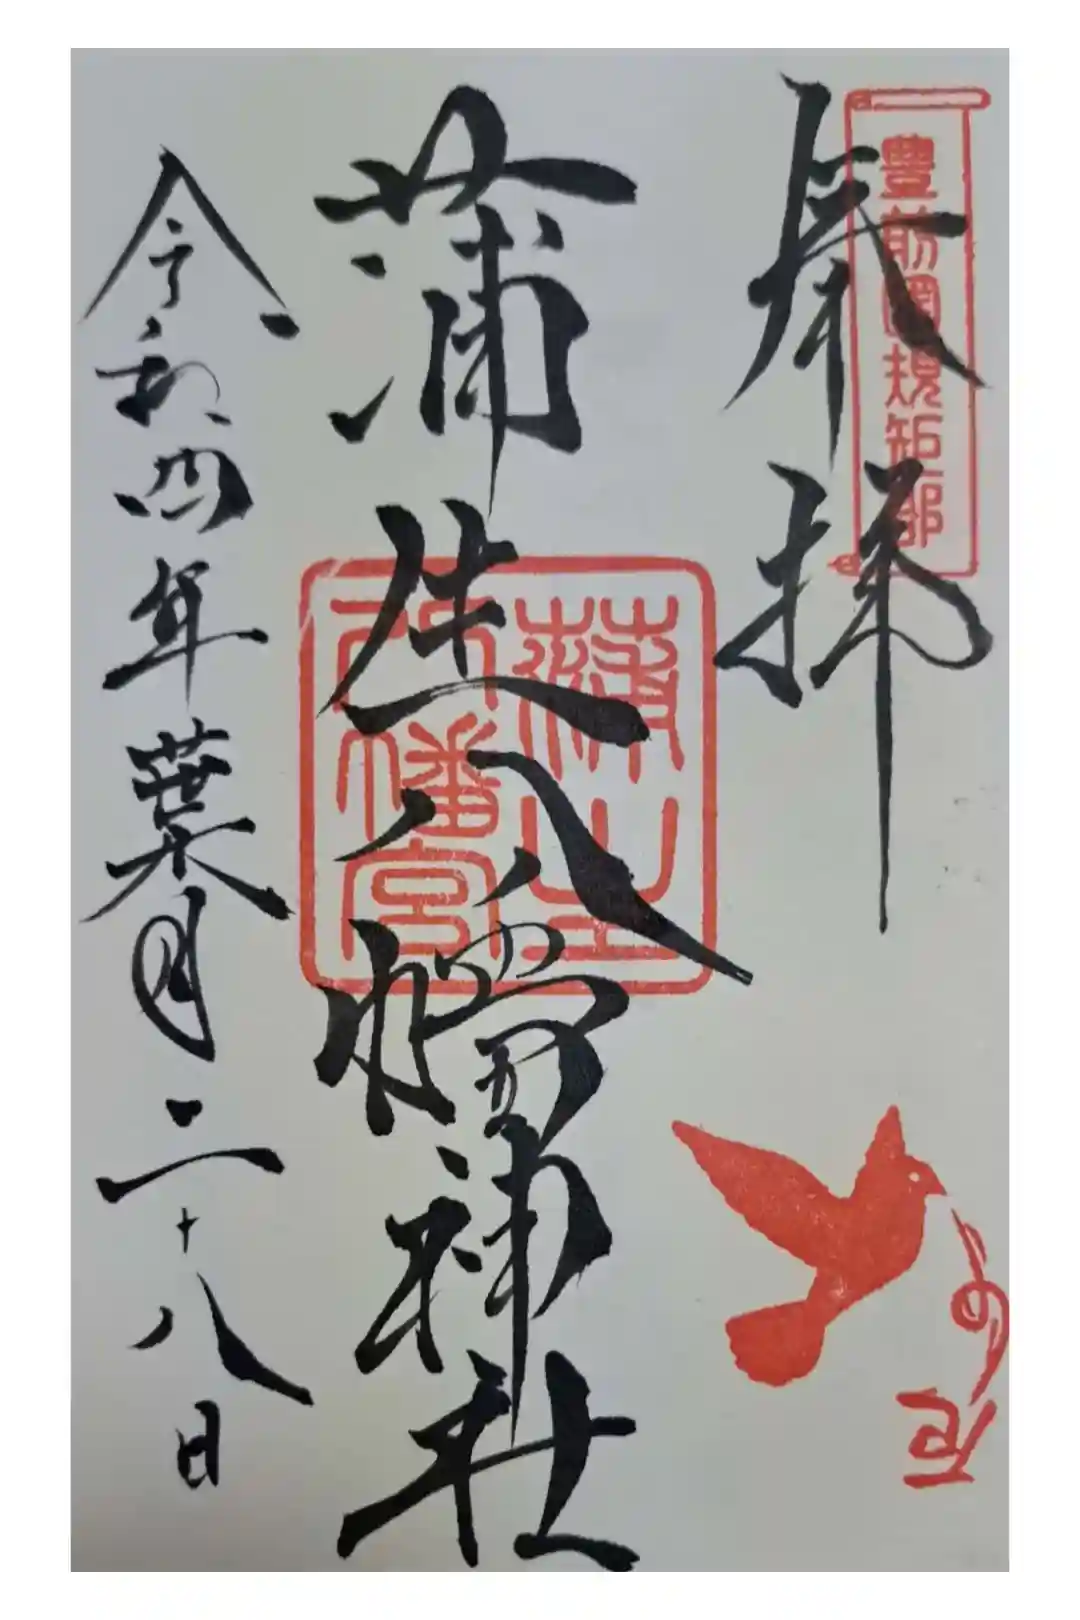 奉拝
豊前國規矩郡
蒲生八幡神社
蒲生
八幡宮
令和四年葉月二十八日